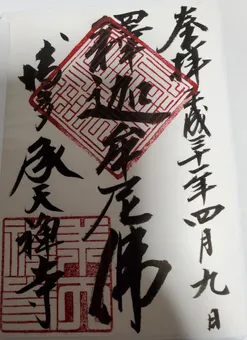 奉拝 平成三十一年四月九日
釋迦牟尼佛
博多 承天禪寺